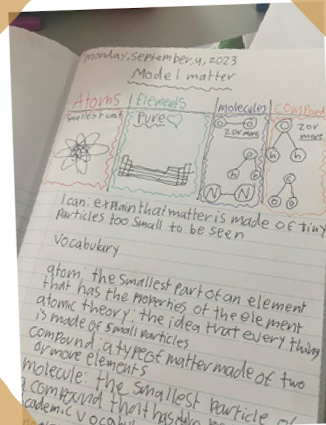 monday, september, 4, 2023
Model matter
Atoms Elements molecules compou
smallest unit Pure♡ 2 or more 2 or more
O O O
O h h
h h
N N
I can: explain that matter is made of tiny
particles too small to be seen
Vocabulary
atom: the smallest part of an element
that has the properties of the element
atomic theory: the idea that every thing
is made of small particles
compound: a type of matter made of two
or more elements
molecule: the smallest particle of
a compound that has
cademic vocabul